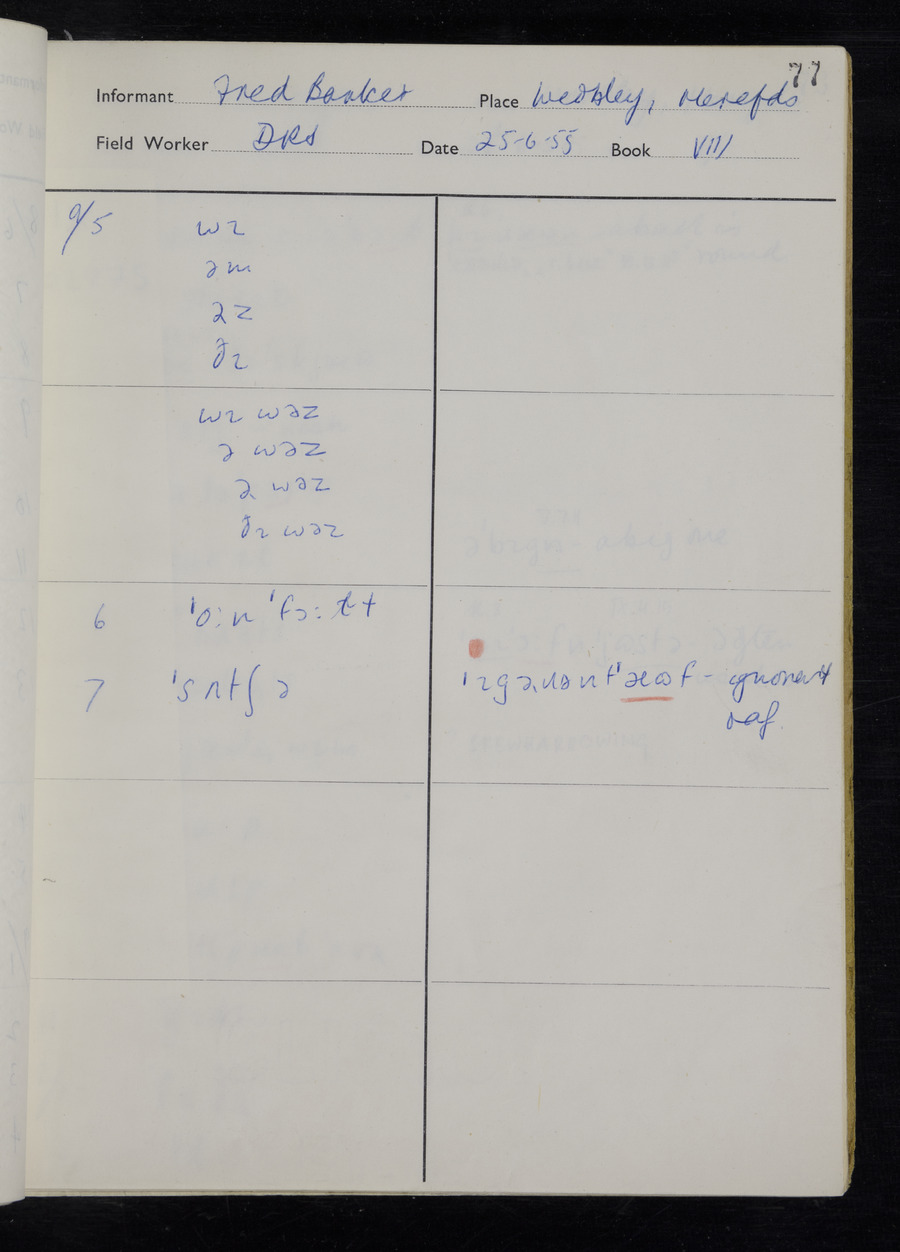 77
Informant Fred Banker Place Weobley, Herefds
Field Worker DRS Date 25-6-55 Book VIII
9/5 wɪ
əm
əz
ðɪ
wɪ wəz
ə wəz
ə wəz
ðɪ wəz
6 ˈɔ:n ˈfɔ:
7 ˈsʌtʃə ˈɪgəɹənt - ignorant
oaf.